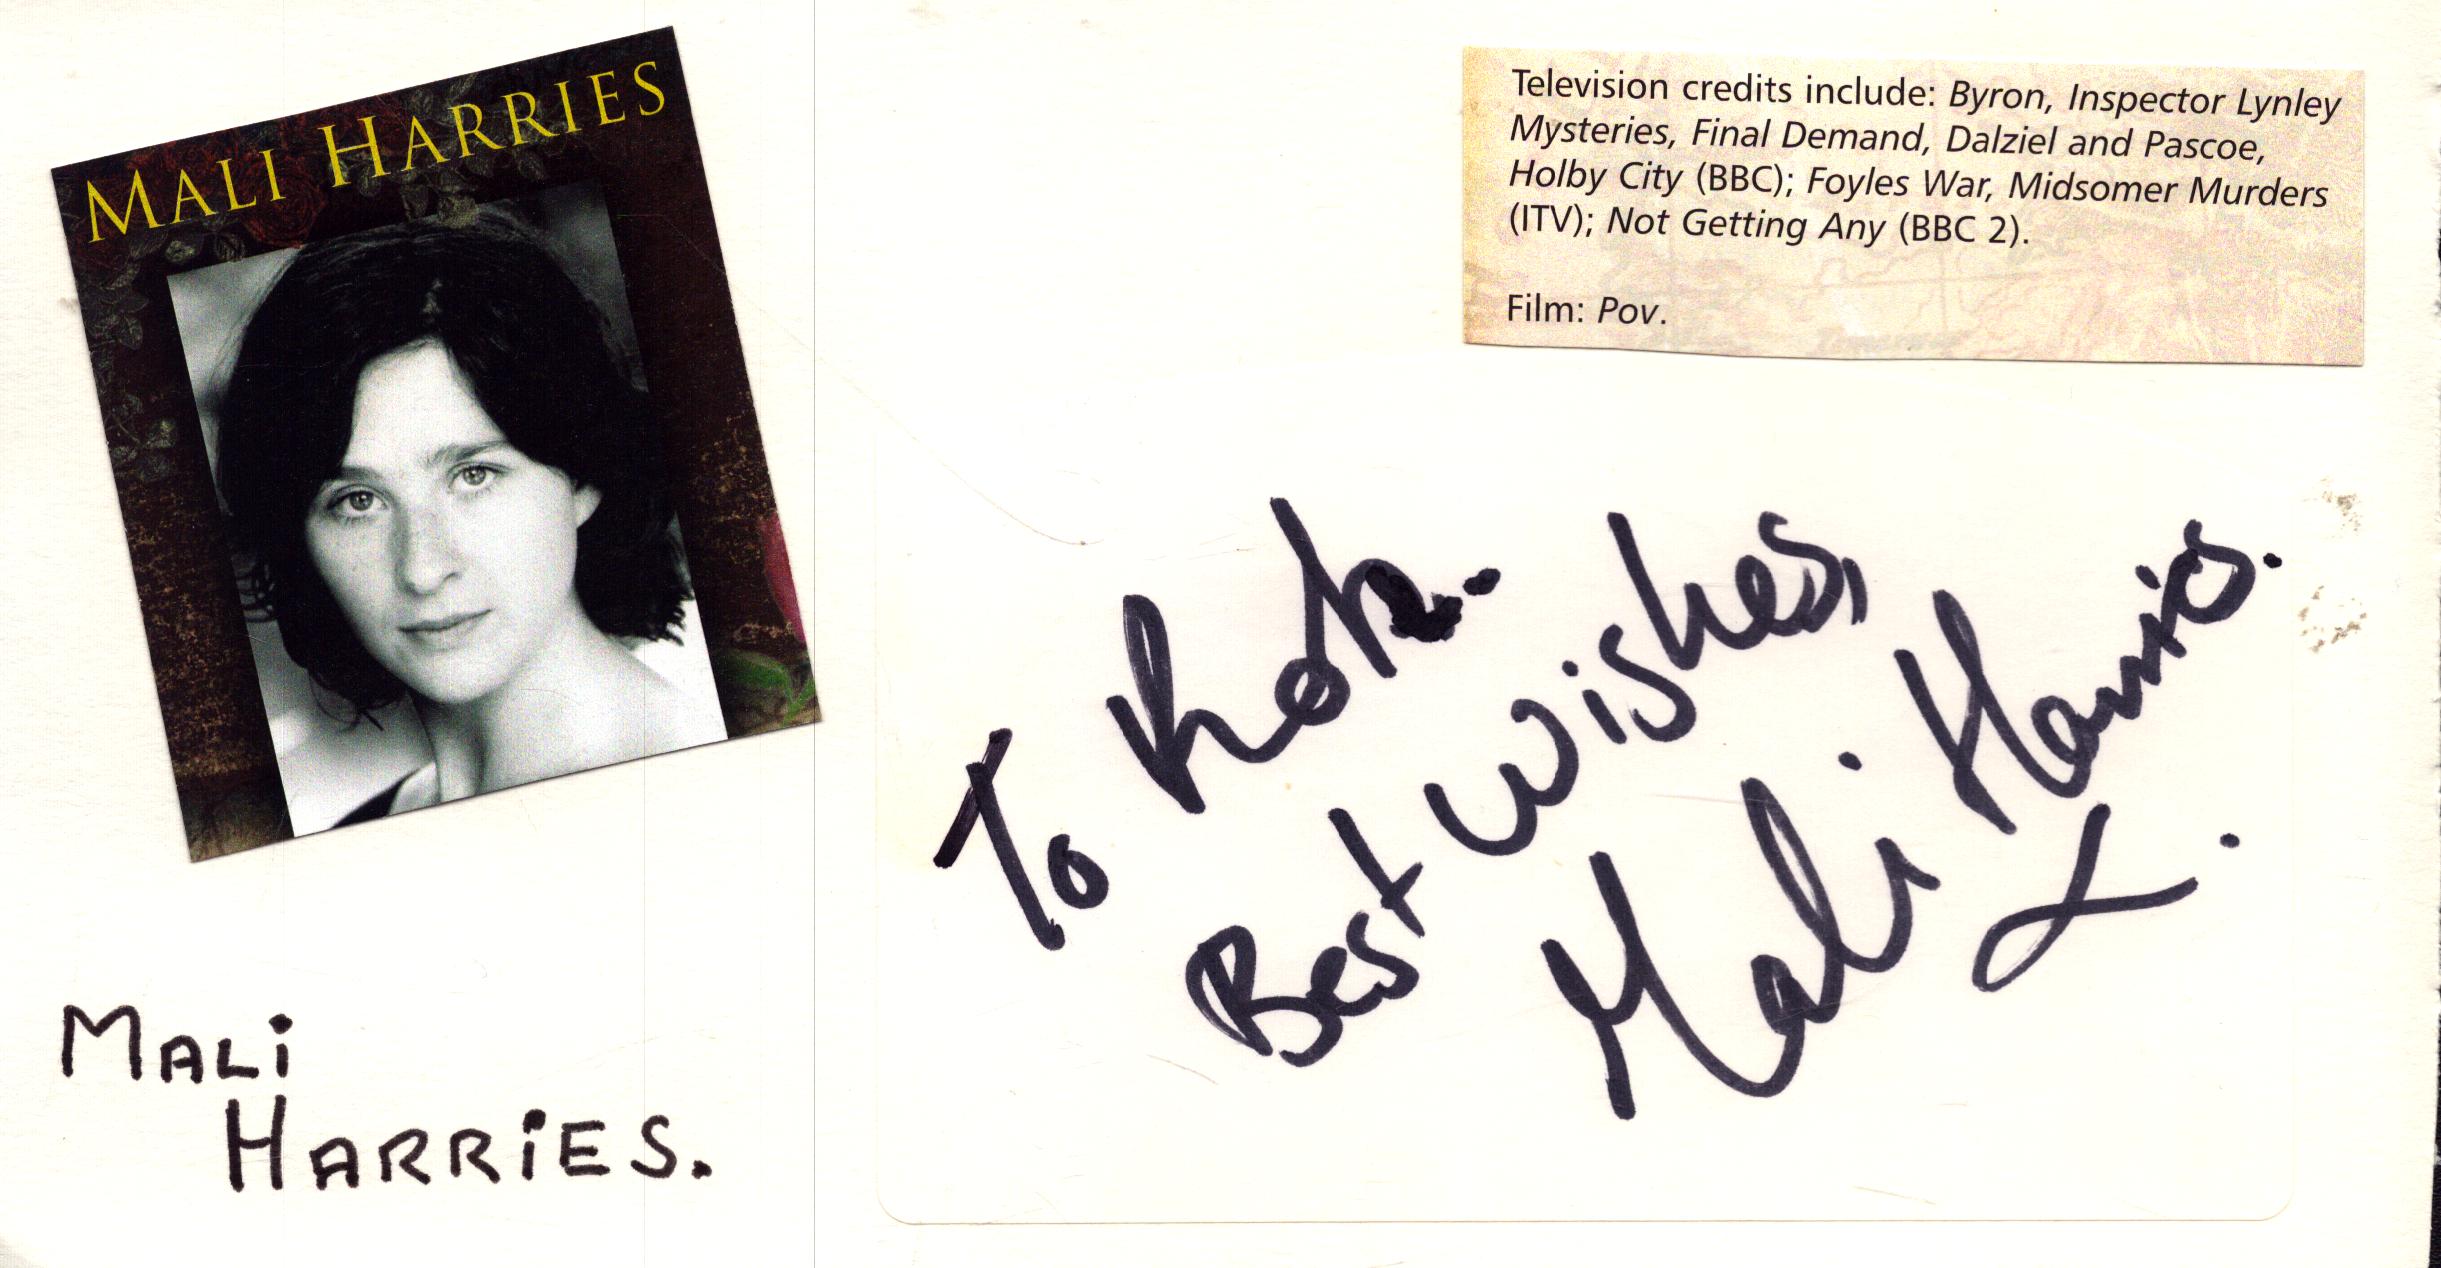 MALI HARRIES
Television credits include: Byron, Inspector Lynley
Mysteries, Final Demand, Dalziel and Pascoe,
Holby City (BBC); Foyles War, Midsomer Murders
(ITV); Not Getting Any (BBC 2).
Film: Pov.
To
Best wishes,
Mali Harries.
x.
MALi
HARRiES.